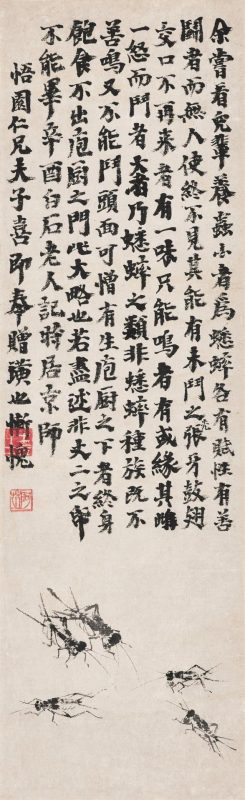 余嘗看兒輩養蟲小者爲蟋蟀各有賦性有善
鬪者而無人使終不見其能有未鬥之先張牙鼓翅
交口不再來者有一味只能鳴者有或緣其雌
一怒而鬥者大者乃蟋蟀之類非蟋蟀種族既不
善鳴又不能鬥頭面可憎有生庖厨之下者終身
飽食不出庖厨之門此大略也若盡述非丈二之紙
不能畢辛酉白石老人記時居京師
悟園仁兄夫子喜即奉贈璜也慚愧